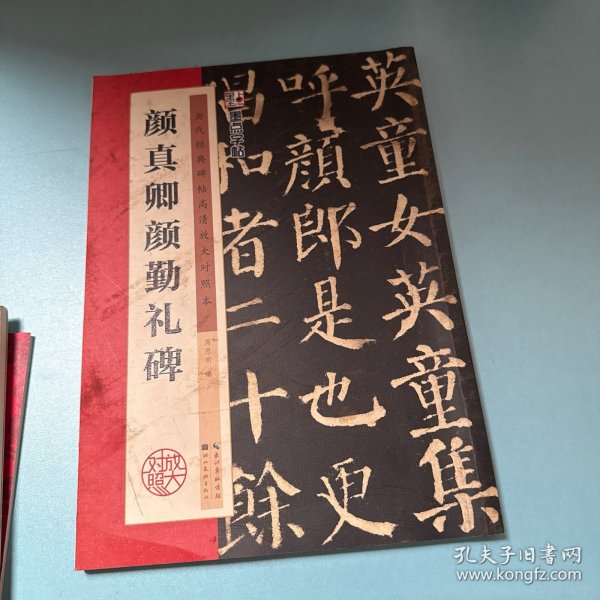 颜真卿颜勤礼碑
放大
对照
历代经典碑帖高清放大对照本
周思明 编
墨点字帖
长江出版传媒
湖北美术出版社
英童女英童集
呼顏郎是也更
唱和者二十餘
孔夫子旧书网
www.kongfz.com